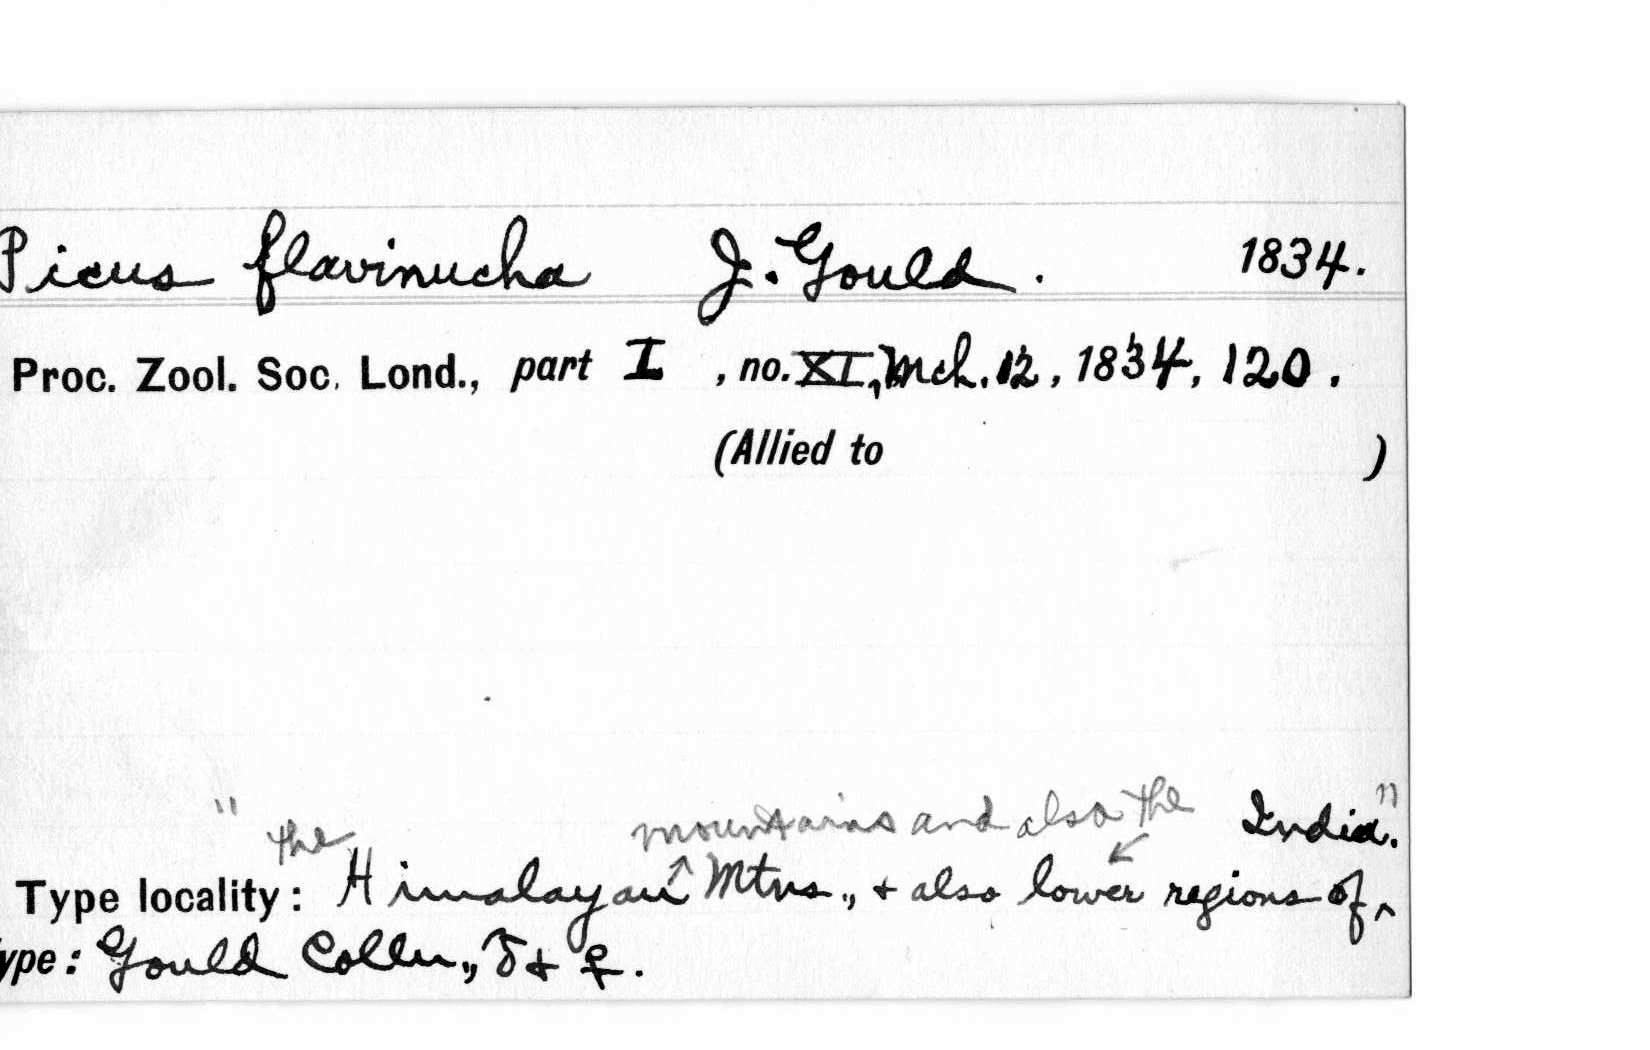 Picus flavinucha J. Gould. 1834.
Proc. Zool. Soc. Lond., part I, no. XI, Mch. 12, 1834, 120.
(Allied to )
" the mountains and also the India."
Type locality: Himalayan ^ Mtns., + also lower regions of ^
ype: Gould Colln., ♂ + ♀.